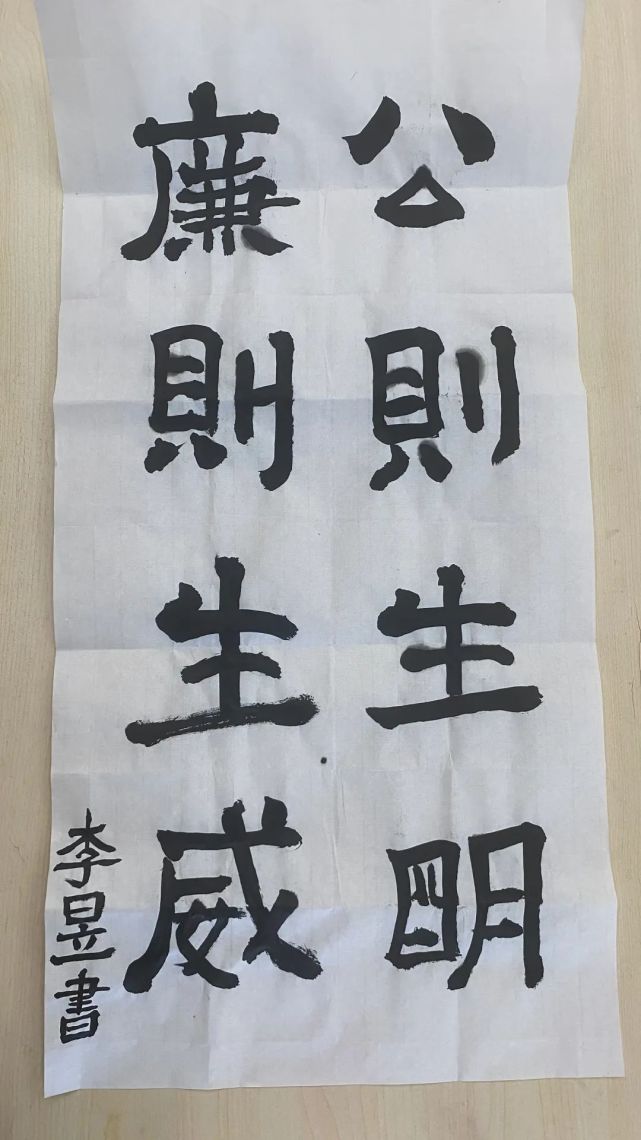 公則生明
廉則生威
李昱書